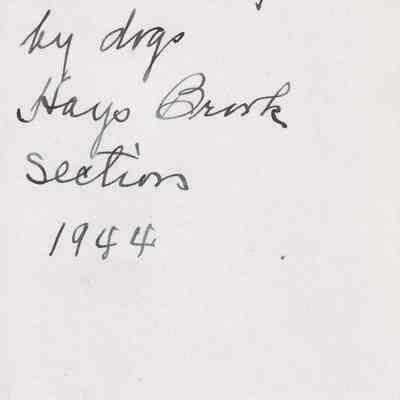 by dogs
Hays Brook
Section
1944